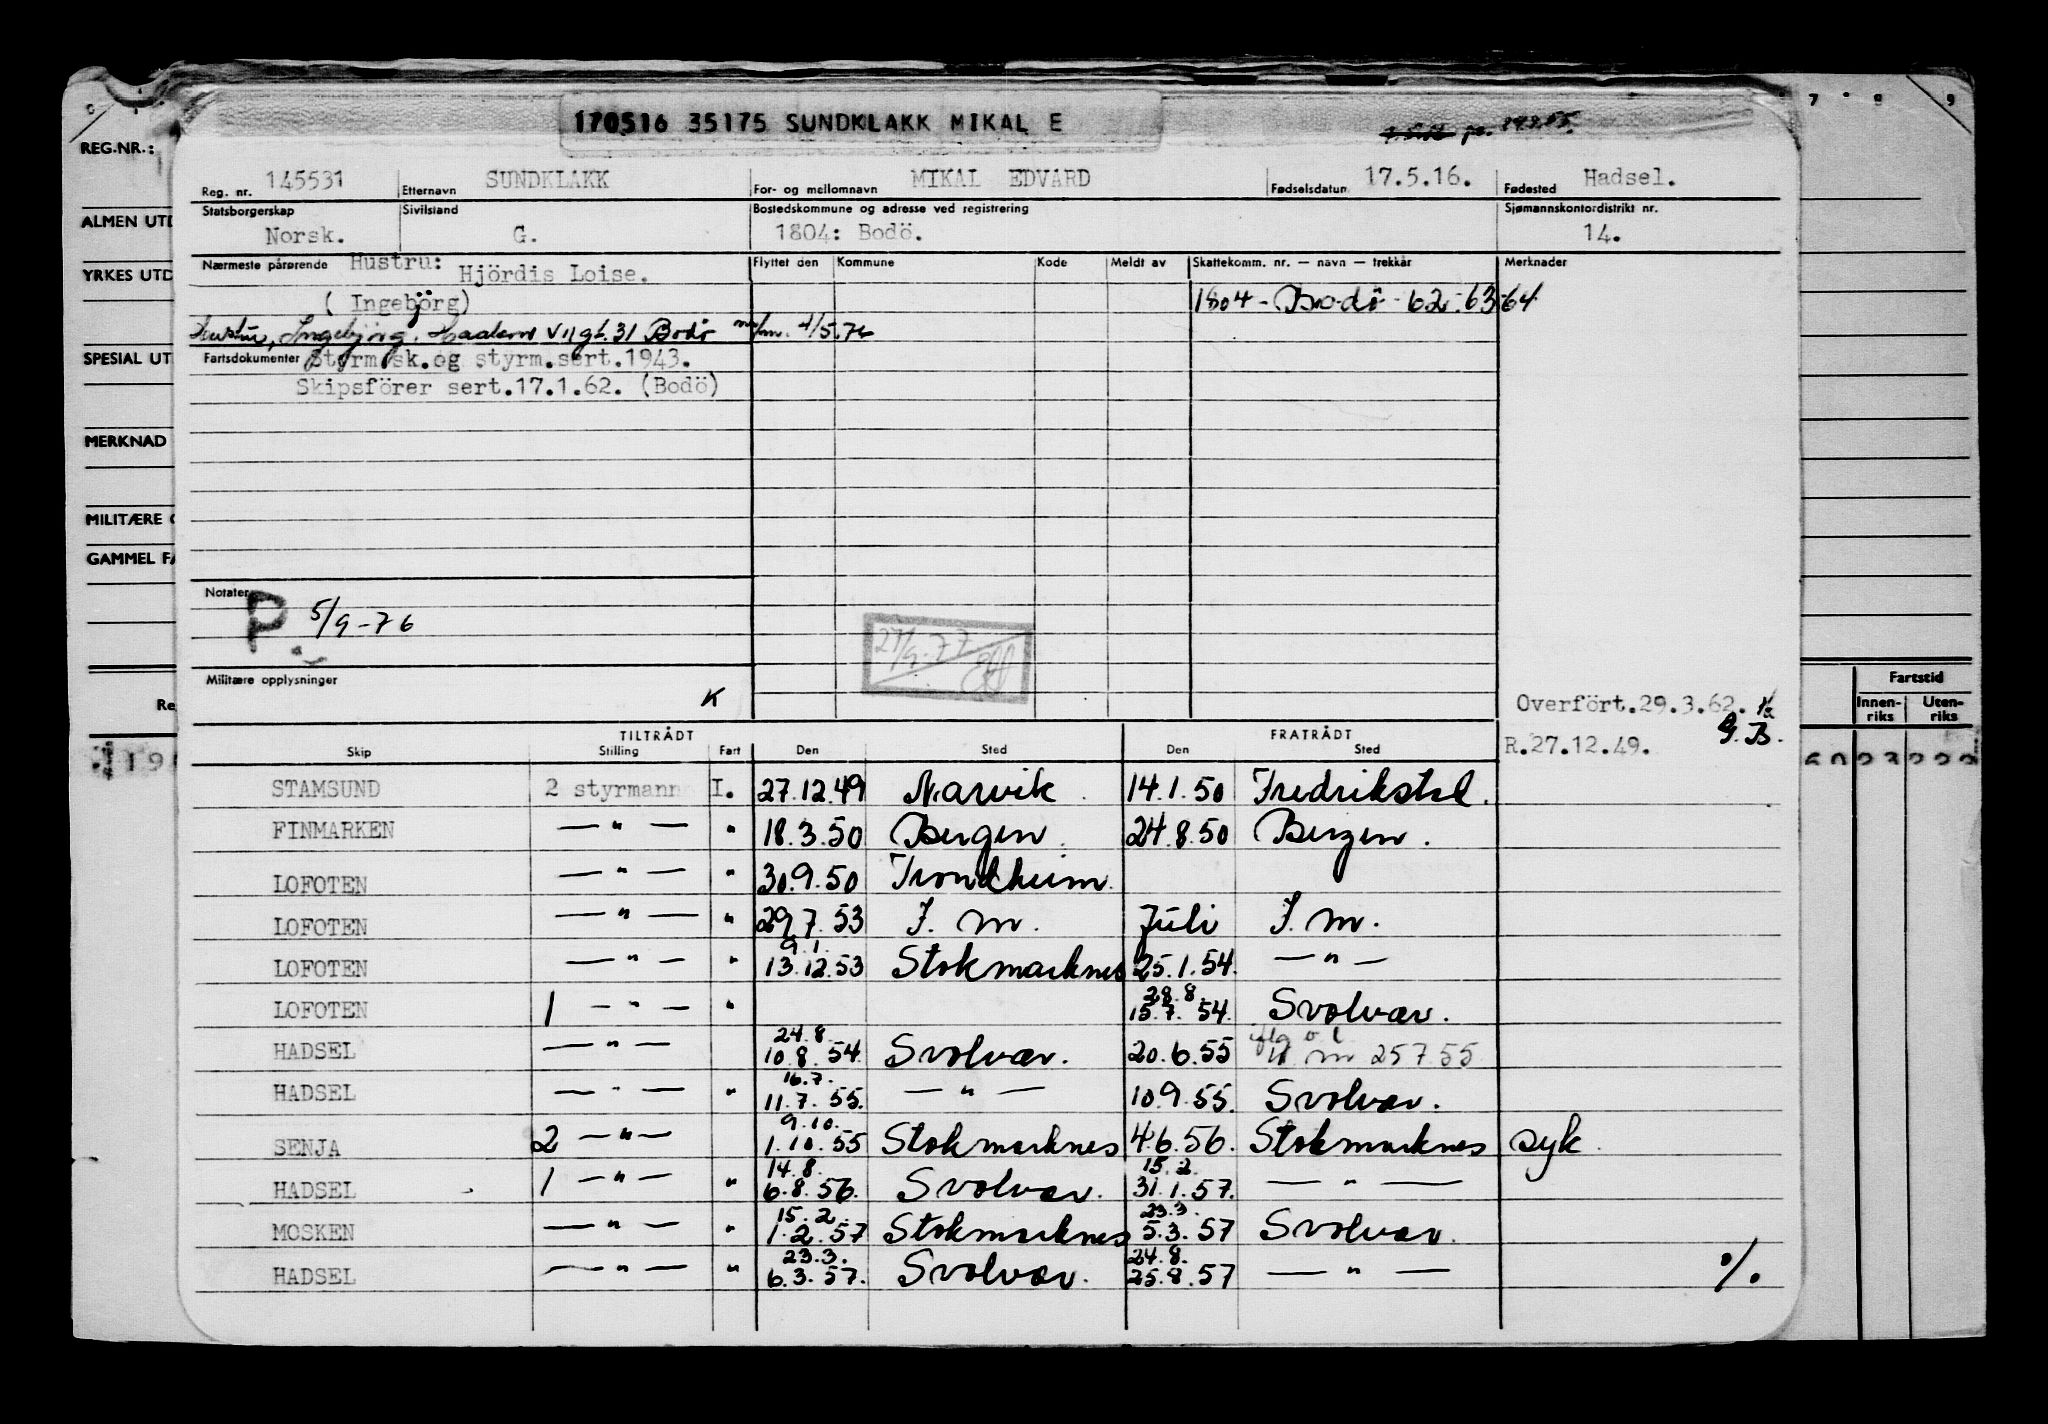 170516 35175 SUNDKLAKK MIKAL E
7 8 9
REG.NR.:
Reg. nr. 145531 Etternavn SUNDKLAKK For- og mellomnavn MIKAL EDVARD Fødselsdatum 17.5.16. Fødested Hadsel.
Statsborgerskap Sivilstand Bostedskommune og adresse ved registrering Sjømannskontordistrikt nr.
ALMEN UTD
Norsk. G. 1804: Bodö. 14.
Nærmeste pårørende Hustru: Hjördis Loise. Flyttet den Kommune Kode Meldt av Skattekomm. nr. — navn — trekkår Merknader
YRKES UTD
( Ingebjörg) 1804 - Bodö - 62-63-64
Ingebjörg. VII gt. 31 Bodö 4/5.76
SPESIAL UT
Fartsdokumenter Styrm.sk.og styrm.sert.1943.
Skipsförer sert.17.1.62. (Bodö)
MERKNAD
MILITÆRE
GAMMEL FA
Notater
P 5/9-76
27/9-77
Militære opplysninger
K
Fartstid
Innen-riks Uten-riks
Overfört.29.3.62.
G.B.
R.27.12.49.
TILTRÅDT FRATRÅDT
Skip Stilling Fart Den Sted Den Sted
STAMSUND 2 styrmann I. 27.12.49 Narvik. 14.1.50 Fredrikstad.
FINMARKEN — " — " 18.3.50 Bergen. 24.8.50 Bergen.
LOFOTEN — " — " 30.9.50 Trondheim.
LOFOTEN — " — " 29.7.53 I. M. Juli I. M.
9.1.
LOFOTEN — " — " 13.12.53 Stokmarknes 25.1.54. — " —
28.8.
LOFOTEN 1 — " — " 15.7.54. Svolvær.
24.8.
HADSEL — " — 10.8.54. Svolvær. 20.6.55 m 25.7.55
16.7.
HADSEL — " — " 11.7.55. — " — 10.9.55. Svolvær.
9.10.
SENJA 2 — " — 1.10.55 Stokmarknes 4.6.56. Stokmarknes syk.
14.8. 15.2.
HADSEL 1 — " — " 6.8.56. Svolvær. 31.1.57. — " —
15.2. 23.3.
MOSKEN — " — " 1.2.57 Stokmarknes 5.3.57 Svolvær.
23.3. 24.8.
HADSEL — " — " 6.3.57. Svolvær. 25.8.57 — " — ./.